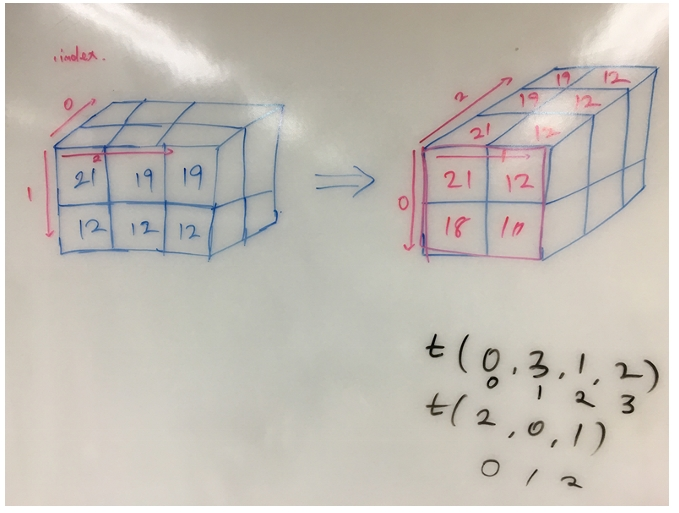 .index.
0
2
1
21 19 19
12 12 12
⇒
2
19 12
19 12
21 12
1
0
21 12
18 10
t(0,3,1,2)
0 1 2 3
t(2,0,1)
0 1 2